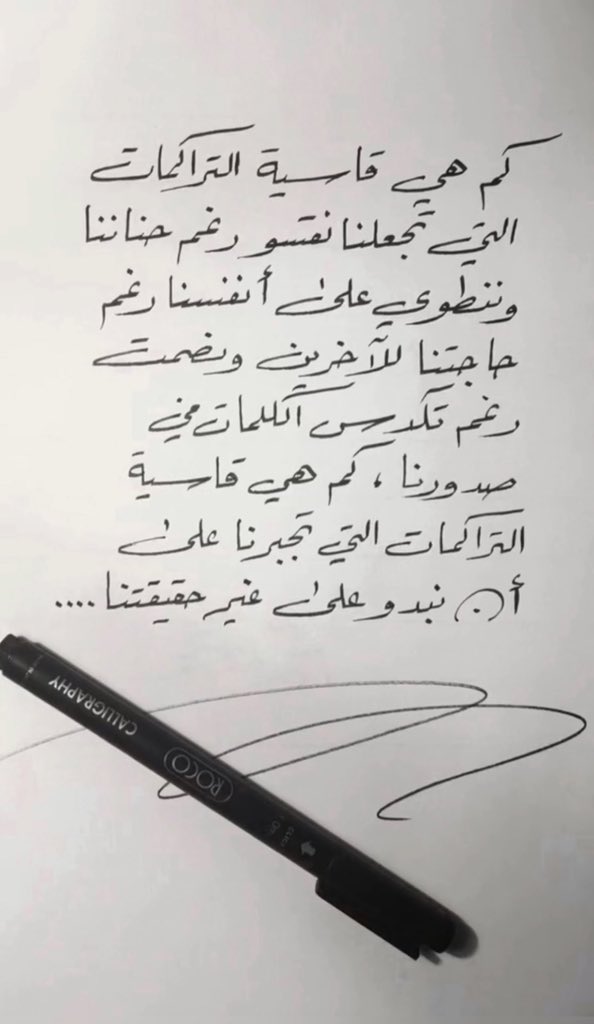 كم هي قاسية التراكمات
التي تجعلنا نقسو رغم حناننا
وننطوي على أنفسنا رغم
حاجتنا للآخرين ونصمت
رغم تكدس الكلمات في
صدورنا ، كم هي قاسية
التراكمات التي تجبرنا على
أن نبدو على غير حقيقتنا ....
CALLIGRAPHY
ROCO